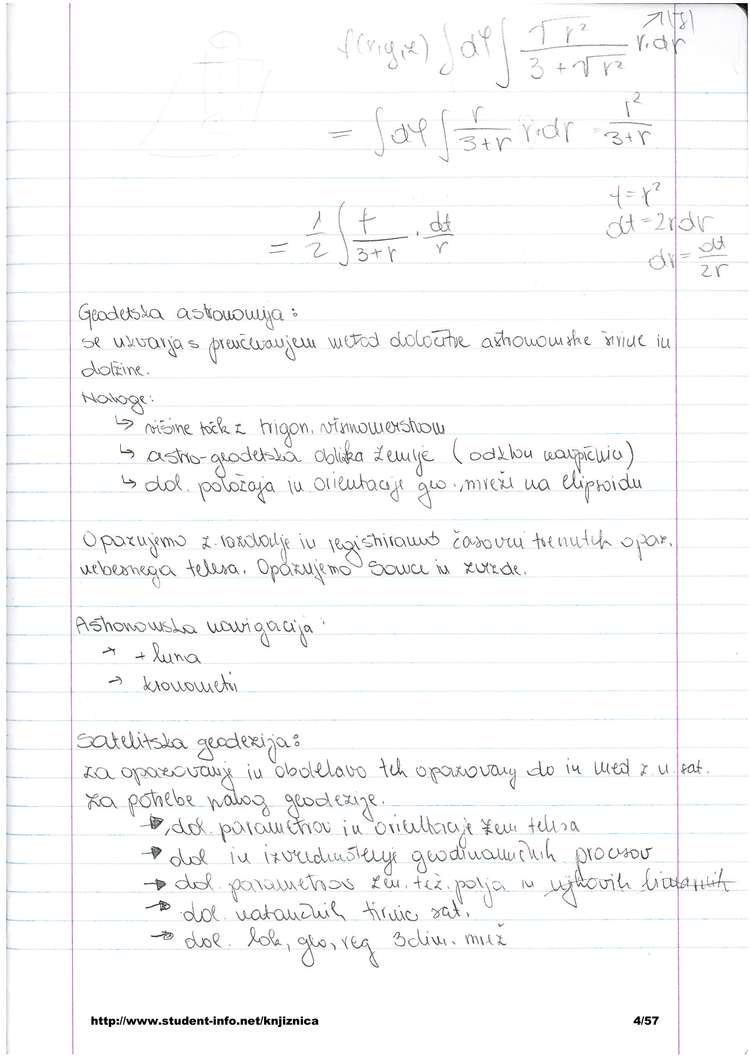 f(r,y,z) ∫dφ ∫ √r² / (3 + √r²) r·dr ↗|J|
= ∫dφ ∫ r/(3+r) r·dr = r²/(3+r)
t = r²
dt = 2r dr
= 1/2 ∫ t/(3+r) · dt/r
dr = dt/2r
Geodetska astronomija:
se ukvarja s preučevanjem metod določitve astronomske širine in
dolžine.
Naloge:
↳ višine točk z trigon. višinomerstvom
↳ astro-geodetska oblika Zemlje (odklon navpičnic)
↳ dol. položaja in orientacije geo. mreže na elipsoidu
Opazujemo z. razdalje in registriramo časovni trenutek opaz.
nebesnega telesa. Opazujemo Sonce in zvezde.
Astronomska navigacija:
→ + luna
→ kronometri
Satelitska geodezija:
za opazovanje in obdelavo teh opazovanj do in med z. u. sat.
za potrebe nalog geodezije.
→ dol. parametrov in orientacije zem. telesa
→ dol in geodinamičnih procesov
→ dol. parametrov zem. tež. polja in njihovih
→ dol. natančnih tirnic sat.
→ dol. lok, geo, reg 3dim. mrež
http://www.student-info.net/knjiznica
4/57